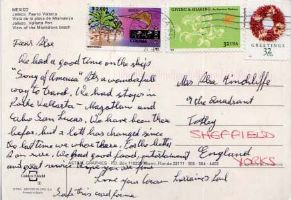 MEXICO
Jalisco, Puerto Vallarta
Vista de la playa de Mismaloya
Jalisco, Vallarta Port
View of the Mismaloya beach
Dear Alse
We had a good time on the ship
"Song of America" It's a wonderful
way to travel. We had stops in
Puerto Vallarta - Mazatlan and
Cabo San Lucas. We have been there
before, but a lot has changed since
the last time we where there. For the better
We had good food, entertainment
and
Love your
Lorraine & Paul
Save this card for me
GIVING & SHARING
32 USA
GREETINGS
32
USA
Mrs Alse Hinchliffe
9 the Quadrant
Totley
SHEFFIELD
England
YORKS